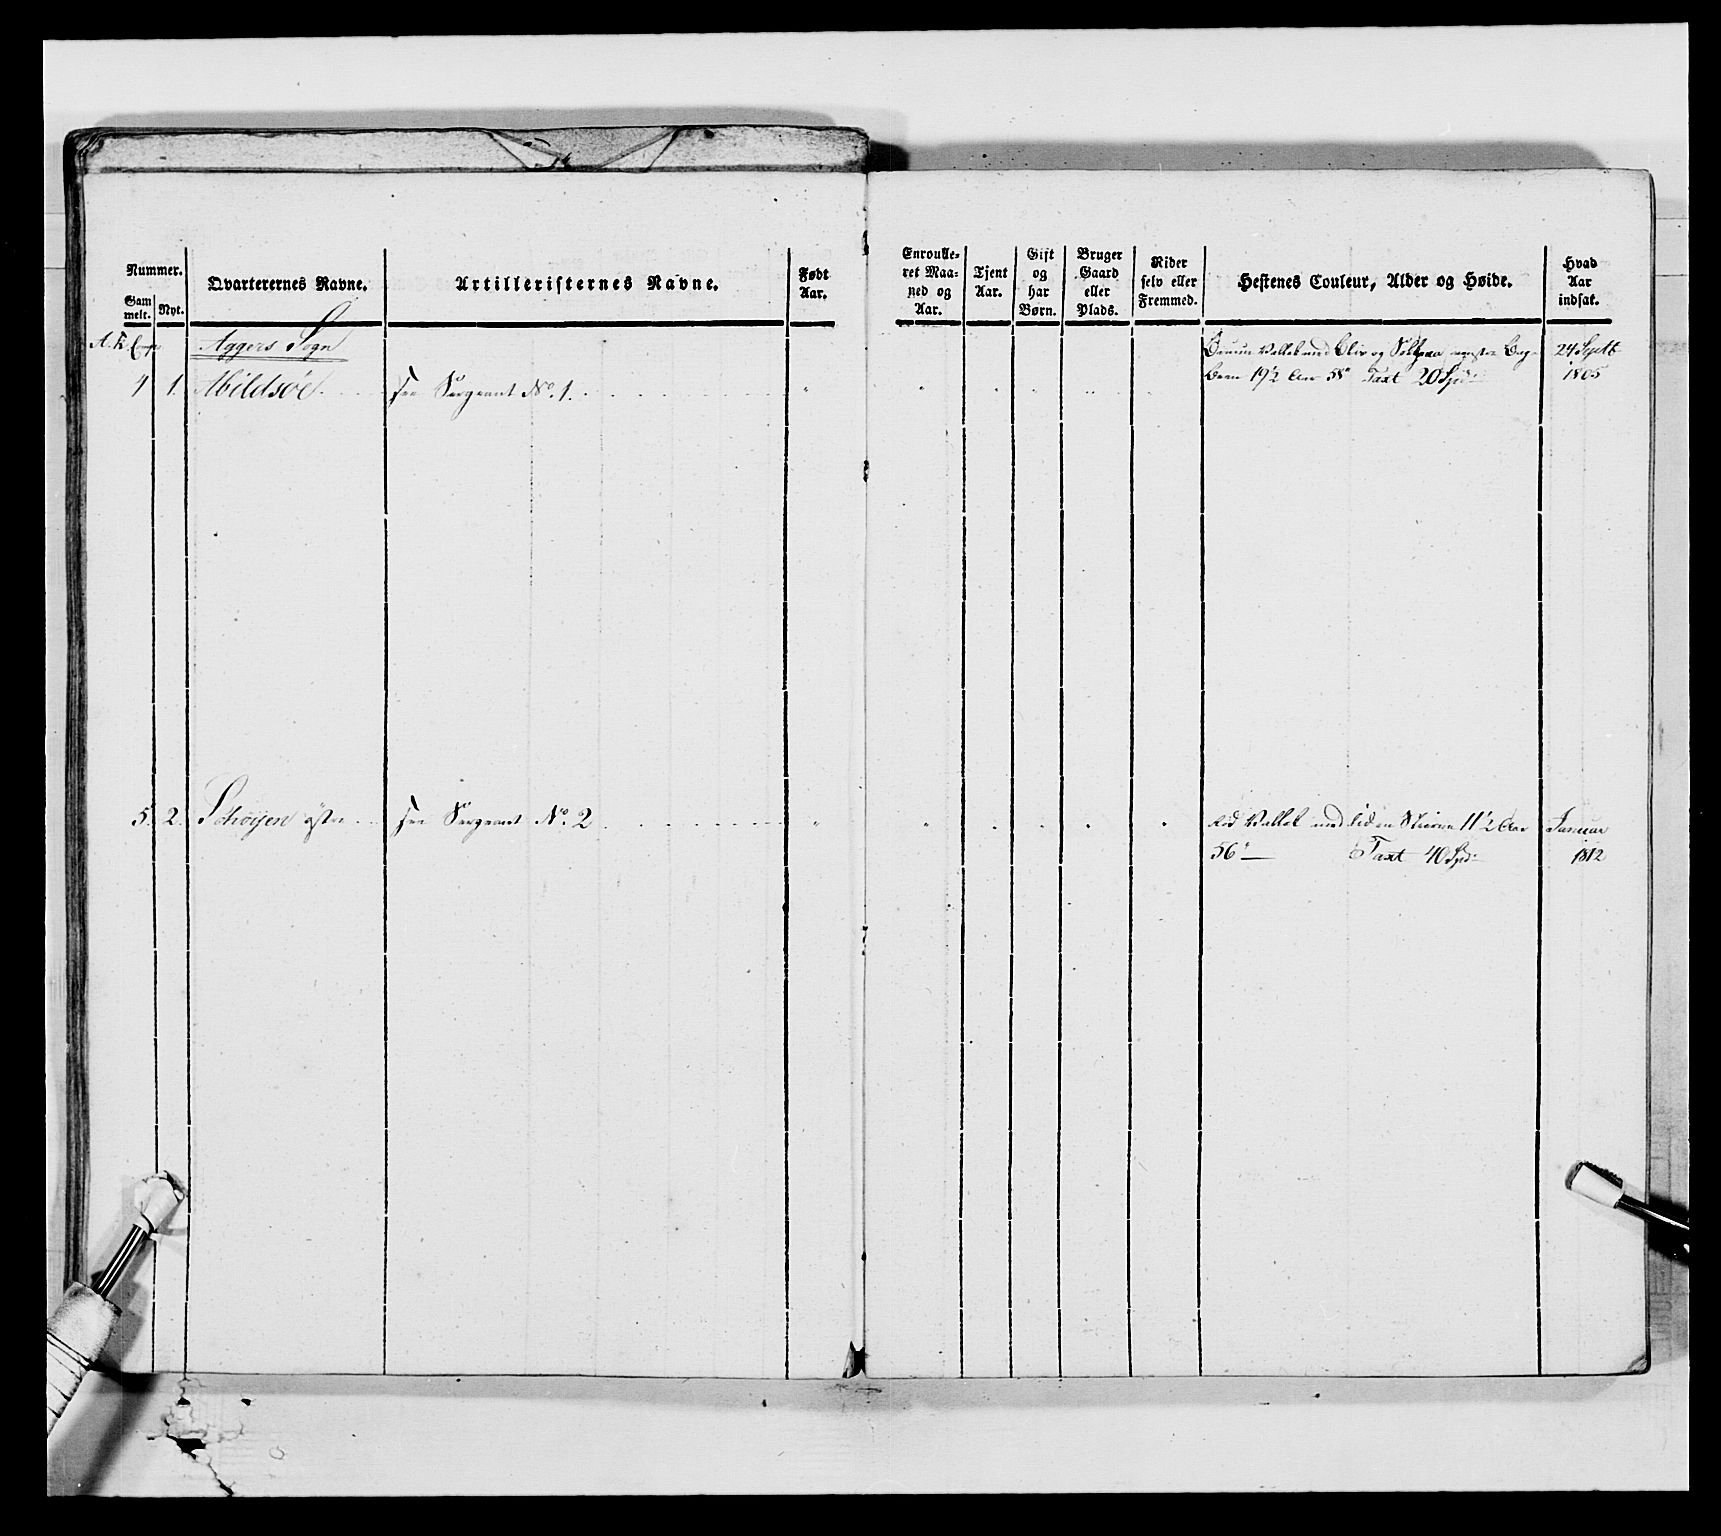 Nummer.
Gam
melt.
Nyt.
Qvarterernes Navne.
Artilleristernes Navne.
Født
Aar.
Enroulle-
ret Maa-
ned og
Aar.
Tjent
Aar.
Gift
og
har
Børn.
Bruger
Gaard
eller
Plads.
Rider
selv eller
Fremmed.
Hestenes Couleur, Alder og Høide.
Hvad
Aar
indsat.
A. K. Comp
Aggers Sogn
4 1. Abildsöe. see Sergeant No. 1.
Bruun Vallak med Bliss og venstre Bag-
Been 19½ Aar 58" Taxt 20 Spd:
24 Septb
1805
5. 2. Schøyen östre see Sergeant No. 2
Röd Vallak med liden Stierne 11½ Aar
56" Taxt 40 Spd:
Januar
1812